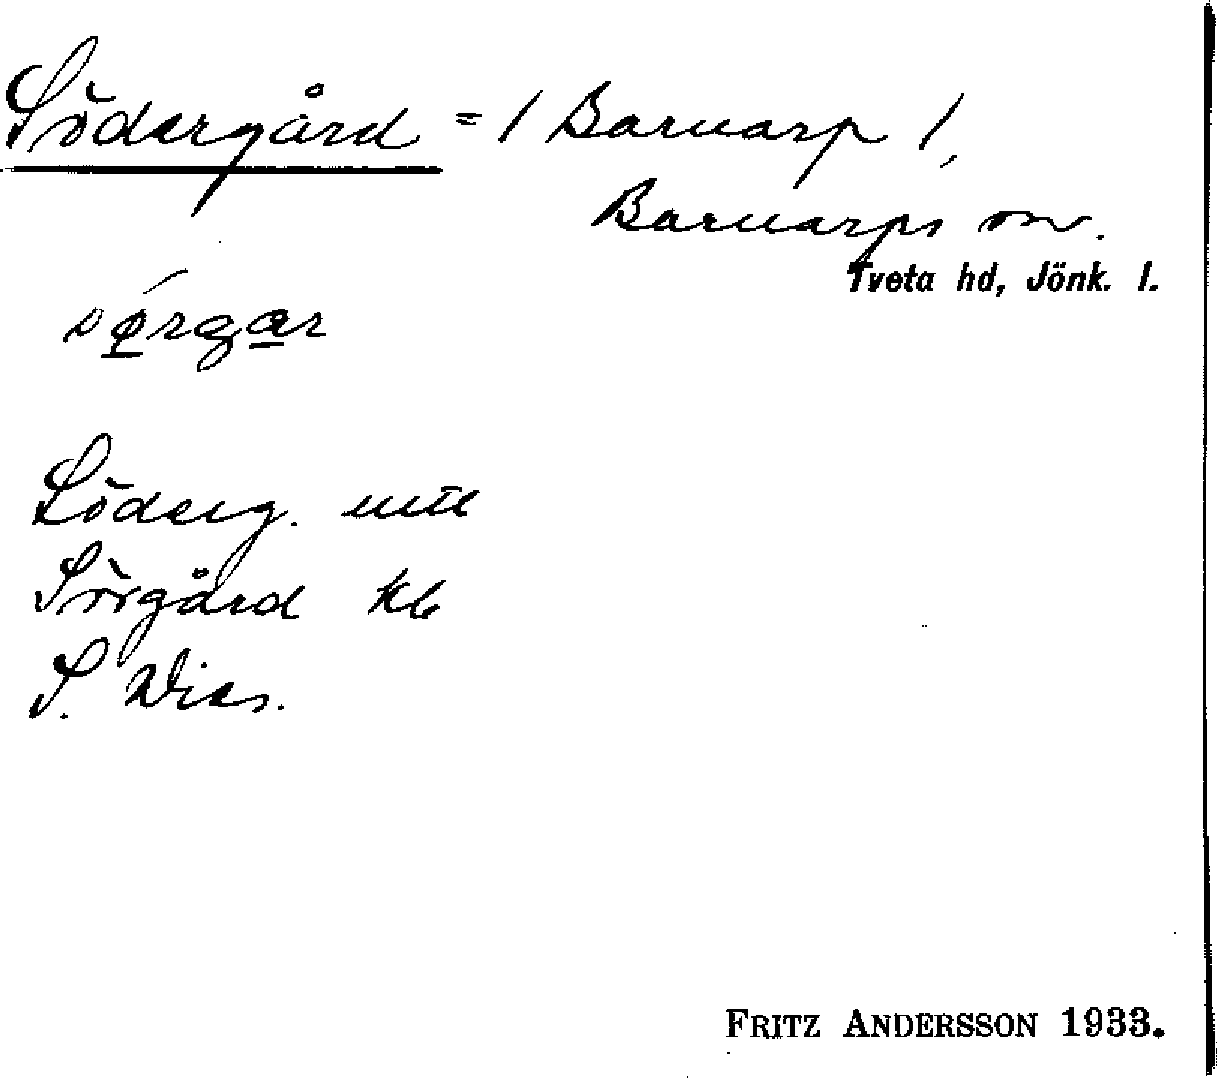 Södergård = / Barnarp /,
Barnarps sn.
Tveta hd, Jönk. l.
sǿ̠rga̠r
Söderg. mtl
Sörgård kb
S. Wies.
FRITZ ANDERSSON 1933.